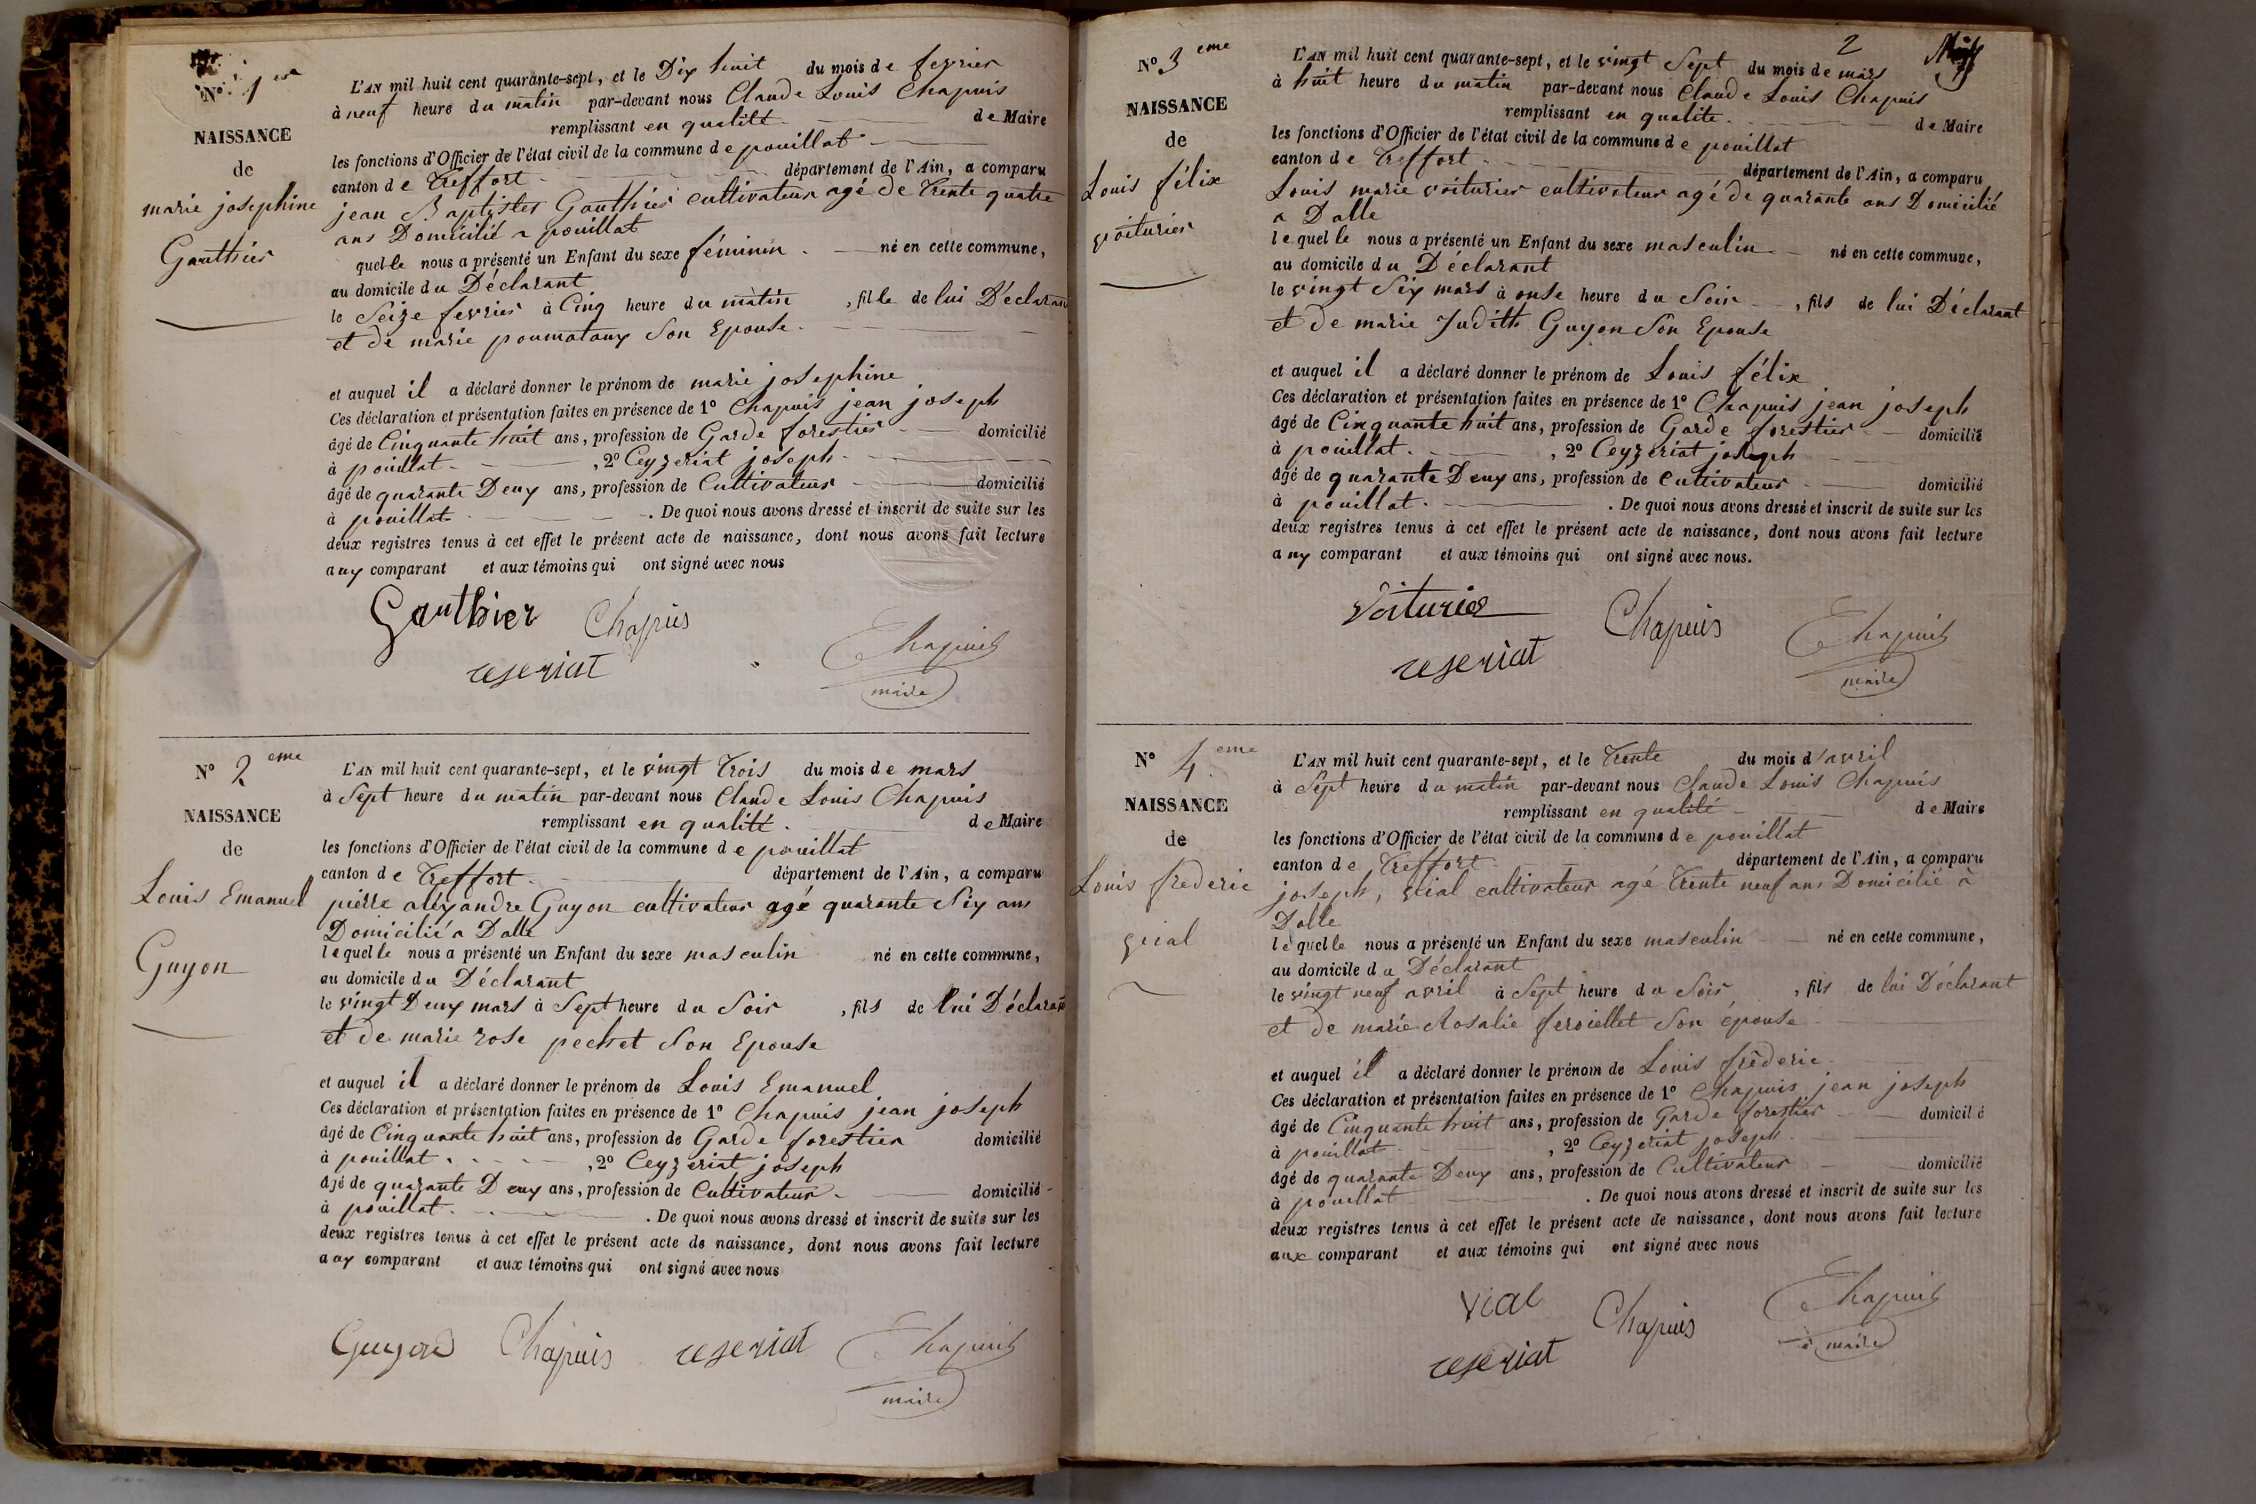 N° 1er
NAISSANCE
de
marie josephine
Gauthier
L'AN mil huit cent quarante-sept, et le Dix huit du mois de fevrier
à neuf heure du matin par-devant nous Claude Louis Chapuis
remplissant en qualité de Maire
les fonctions d'Officier de l'état civil de la commune de pouillat
canton de Treffort département de l'Ain, a comparu
jean Baptister Gauthier cultivateur agé de Trente quatre
ans Domicilié a pouillat
quelle nous a présenté un Enfant du sexe féminin né en cette commune,
au domicile du Déclarant
le Seize fevrier à Cinq heure du matin, fille de lui Déclarant
et de marie poumatouy Son Epouse
et auquel il a déclaré donner le prénom de marie josephine
Ces déclaration et présentation faites en présence de 1° Chapuis jean joseph
âgé de Cinquante huit ans, profession de Garde forestier domicilié
à pouillat, 2° Ceyzeriat joseph
âgé de quarante Deuy ans, profession de Cultivateur domicilié
à pouillat. De quoi nous avons dressé et inscrit de suite sur les
deux registres tenus à cet effet le présent acte de naissance, dont nous avons fait lecture
auy comparant et aux témoins qui ont signé avec nous
Gauthier Chapuis
ceseriat Chapuis
maire
N° 2eme
NAISSANCE
de
Louis Emanuel
Guyon
L'AN mil huit cent quarante-sept, et le vingt Trois du mois de mars
à Sept heure du matin par-devant nous Claude Louis Chapuis
remplissant en qualité de Maire
les fonctions d'Officier de l'état civil de la commune de pouillat
canton de Treffort département de l'Ain, a comparu
pierre alexandre Guyon cultivateur agé quarante Six ans
Domicilié a Dalle
lequelle nous a présenté un Enfant du sexe masculin né en cette commune,
au domicile du Déclarant
le vingt Deuy mars à Sept heure du Soir, fils de lui Déclarant
et de marie rose pechet Son Epouse
et auquel il a déclaré donner le prénom de Louis Emanuel
Ces déclaration et présentation faites en présence de 1° Chapuis jean joseph
âgé de Cinquante huit ans, profession de Garde forestier domicilié
à pouillat, 2° Ceyzeriat joseph
âgé de quarante Deuy ans, profession de Cultivateur domicilié
à pouillat. De quoi nous avons dressé et inscrit de suite sur les
deux registres tenus à cet effet le présent acte de naissance, dont nous avons fait lecture
auy comparant et aux témoins qui ont signé avec nous
Guyon Chapuis ceseriat Chapuis
maire
2
N° 3eme
NAISSANCE
de
Louis félix
voiturier
L'AN mil huit cent quarante-sept, et le vingt Sept du mois de mars
à huit heure du matin par-devant nous Claude Louis Chapuis
remplissant en qualité de Maire
les fonctions d'Officier de l'état civil de la commune de pouillat
canton de Treffort département de l'Ain, a comparu
Louis marie voiturier cultivateur agé de quarante ans Domicilié
a Dalle
lequelle nous a présenté un Enfant du sexe masculin né en cette commune,
au domicile du Déclarant
le vingt Six mars à onse heure du Soir, fils de lui Déclarant
et de marie Judith Guyon Son Epouse
et auquel il a déclaré donner le prénom de Louis félix
Ces déclaration et présentation faites en présence de 1° Chapuis jean joseph
âgé de Cinquante huit ans, profession de Garde forestier domicilié
à pouillat, 2° Ceyzeriat joseph
âgé de quarante Deuy ans, profession de Cultivateur domicilié
à pouillat. De quoi nous avons dressé et inscrit de suite sur les
deux registres tenus à cet effet le présent acte de naissance, dont nous avons fait lecture
auy comparant et aux témoins qui ont signé avec nous.
Voiturier Chapuis Chapuis
ceseriat maire
N° 4eme
NAISSANCE
de
Louis frederic
vial
L'AN mil huit cent quarante-sept, et le Trente du mois d'avril
à Sept heure du matin par-devant nous Claude Louis Chapuis
remplissant en qualité de Maire
les fonctions d'Officier de l'état civil de la commune de pouillat
canton de Treffort département de l'Ain, a comparu
joseph, vial cultivateur agé Trente neuf ans Domicilié à
Dalle
lequelle nous a présenté un Enfant du sexe masculin né en cette commune,
au domicile du Déclarant
le vingt neuf avril à Sept heure du Soir, fils de lui Déclarant
et de marie Rosalie feroiellet Son epouse
et auquel il a déclaré donner le prénom de Louis frederic
Ces déclaration et présentation faites en présence de 1° Chapuis jean joseph
âgé de Cinquante huit ans, profession de Garde forestier domicilié
à pouillat, 2° Ceyzeriat joseph
âgé de quarante Deuy ans, profession de Cultivateur domicilié
à pouillat. De quoi nous avons dressé et inscrit de suite sur les
deux registres tenus à cet effet le présent acte de naissance, dont nous avons fait lecture
aux comparant et aux témoins qui ont signé avec nous
vial Chapuis Chapuis
ceseriat maire